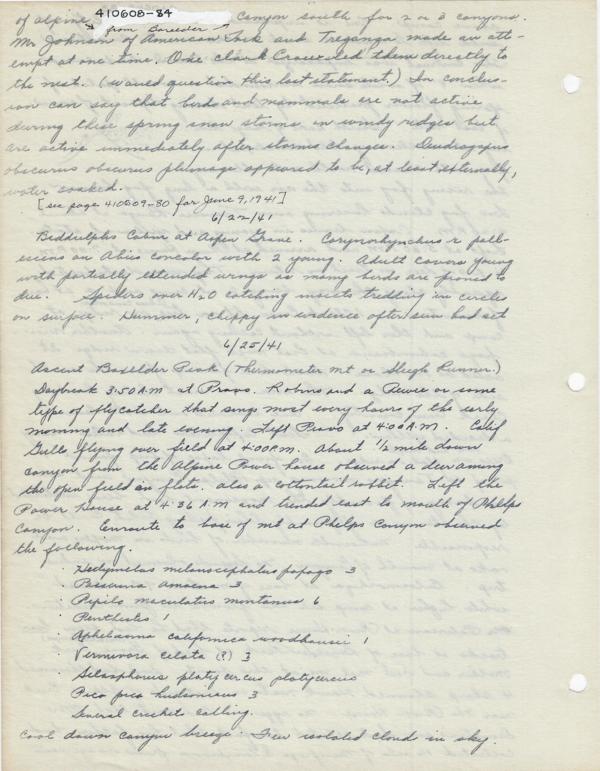 410608-84
of alpine canyon south for 2 or 3 canyons.
from Boxelder
Mr Johnson of American Fork and Treganza made an att-
empt at one time. One Clark Crow led them directly to
the nest. (waned question this last statement.) In conclus-
ion can say that birds and mammals are not active
during these spring snow storms on windy ridges but
are active immediately after storms changes. Dendragapus
obscurus obscurus plumage appeared to be, at least externally,
water soaked.
[see page 410609-80 for June 9, 1941]
6/22/41
Biddulphs Cabin at Aspen Grove. Corynorhynchus r pall-
escens on Abies concolor with 2 young. Adult covers young
with partially extended wings as many birds are proned to
due. Spiders over H2O catching insects tredding in circles
on surface. Hummer, chippy in evidence after sun had set
6/25/41
Ascent Boxelder Peak (Thermometer Mt or Sleigh Runner.)
Daybreak 3:50 A.M at Provo. Robins and a Pewee or some
type of flycatcher that sings most every hours of the early
morning and late evening. Left Provo at 4:00 A.M. Calif
Gulls flying over field at 4:00 P.M. About 1/2 mile down
canyon from the Alpine Power house observed a deer among
the open field on flats. also a cottontail rabbit. Left the
Power House at 4:36 A M and trended east to mouth of Phelps
Canyon. Enroute to base of mt at Phelps Canyon observed
the following.
· Hedymelas melanocephalus papago 3
· Passerina amoena 3
· Pipilo maculatus montanus 6
· Penthestes 1
· Aphelocoma californica woodhouseii 1
· Vermivora celata (?) 3
· Selasphorus platycercus platycercus
Pica pica hudsonicus 3
Several crickets calling.
Cool down canyon breeze. Few isolated cloud in sky.